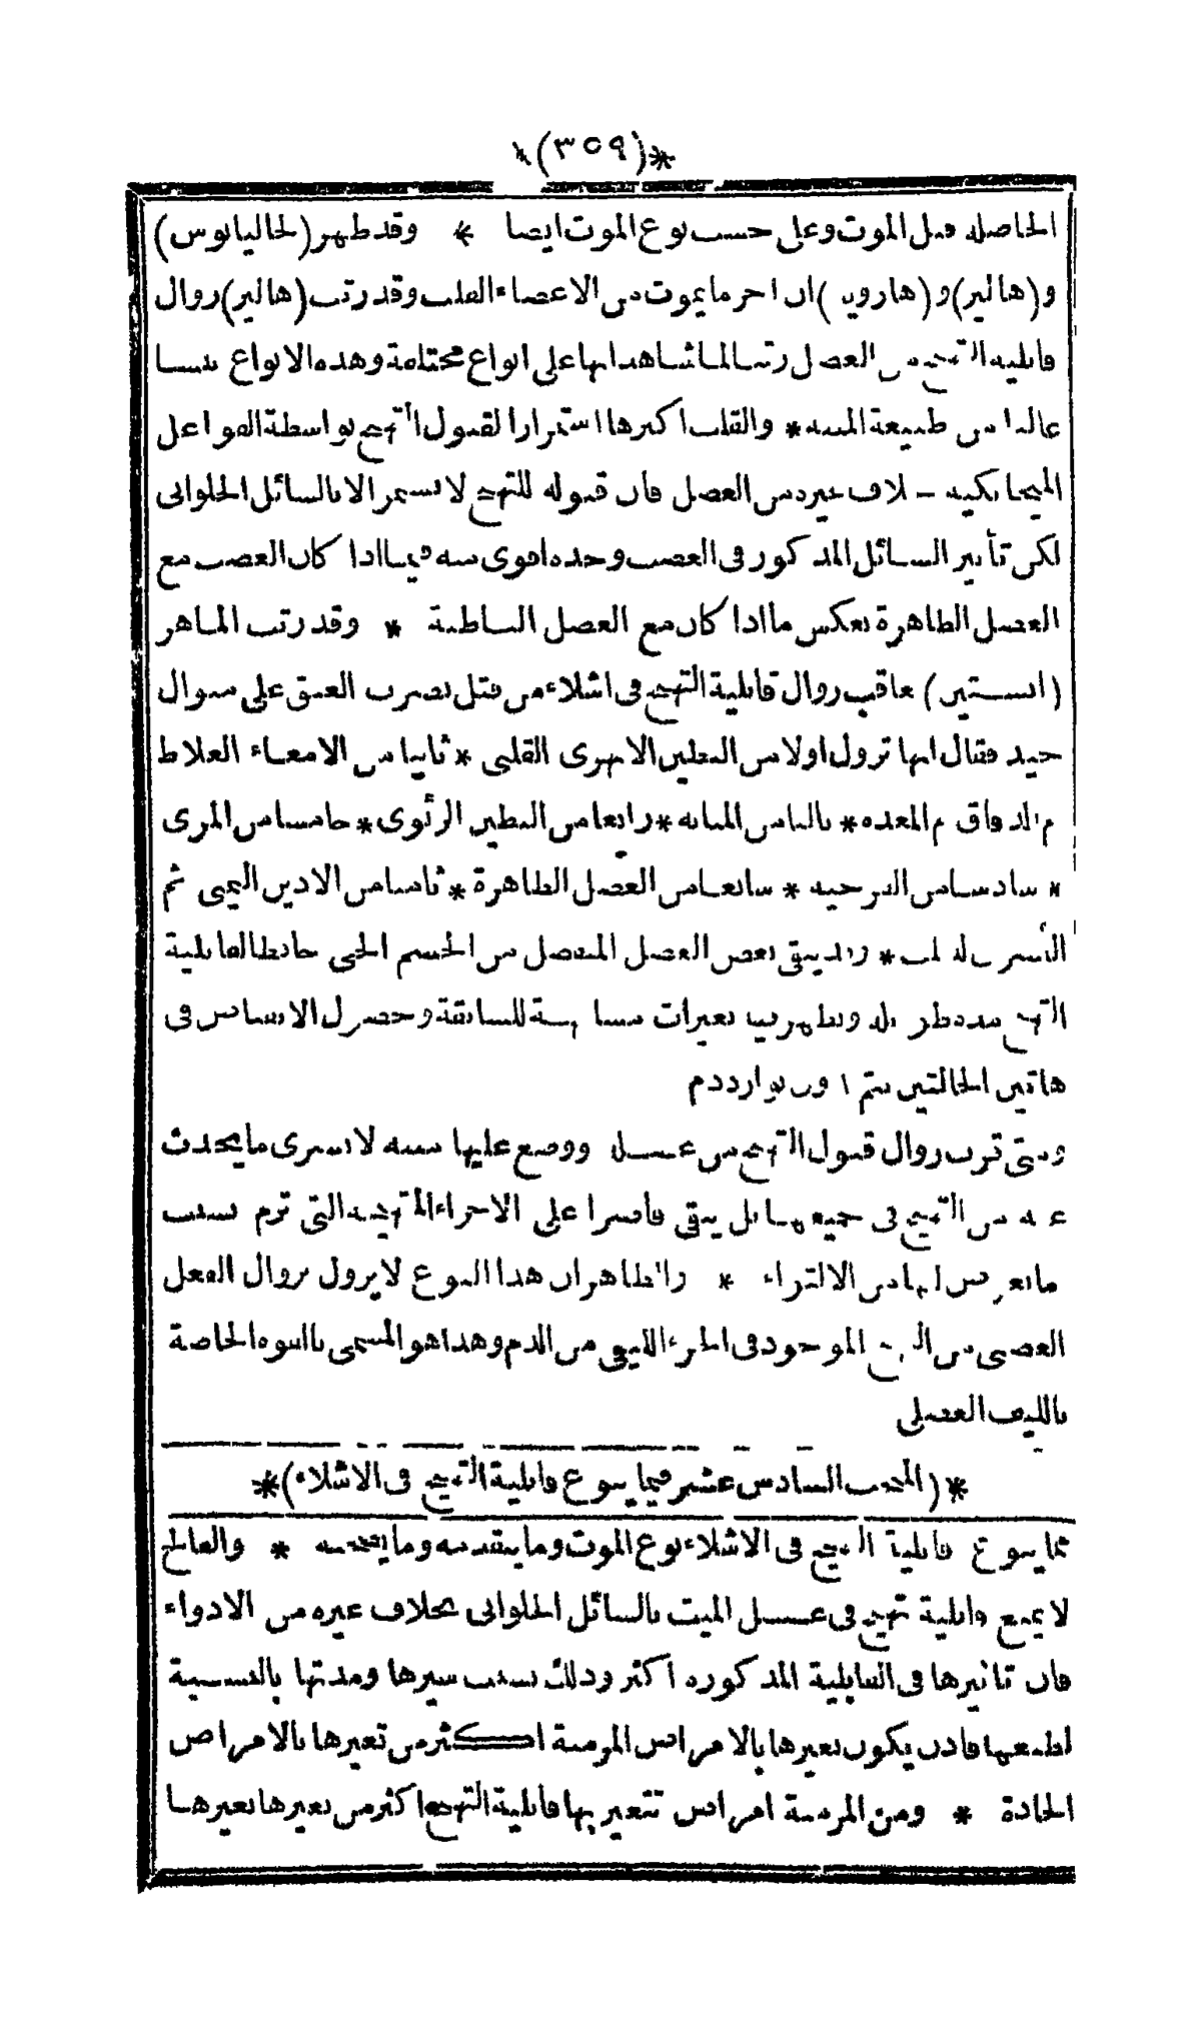 *(٣٥٩)*
الحاصلة قبل الموت وعلى حسب نوع الموت ايضا * وقد ظهر (لجاليانوس)
و(هالير) و(هارويه) ان اخر ما يموت من الاعضاء القلب وقد رتب (هالير) زوال
قابلية التهيج من العضل رتبا لما شاهد انها على انواع مختلفة وهذه الانواع تنشا
غالبا من طبيعة المنبه * والقلب اكبرها استمرارا لقبول التهيج بواسطة الفواعل
الميخانيكية بخلاف غيره من العضل فان قبوله للتهيج لا يستمر الا بالسائل الحلوانى
لكن تأثير السائل المذكور فى العصب وحده اقوى منه فيما اذا كان العصب مع
العضل الظاهرة بعكس ما اذا كان مع العضل الباطنة * وقد رتب الماهر
(انستين) تعاقب زوال قابلية التهيج فى اشلاء من قتل بضرب العنق على منوال
جيد فقال انها تزول اولا من البطين الابهرى القلبى * ثانيا من الامعاء الغلاظ
ثم الدقاق ثم المعده * ثالثا من المثانه * رابعا من البطين الرئوى * خامسا من المرى
* سادسا من القزحيه * سابعا من العضل الظاهرة * ثامنا من الاذين اليمنى ثم
الأيسر للقلب * وقد يبقى بعض العضل المنفصل من الجسم الحى حافظا لقابلية
التهيج مدة طويلة ويظهر فيه تغيرات مشابهة للسابقة وحصول الانقباض فى
هاتين الحالتين يتم بدون توارد دم
ومتى قرب زوال قبول التهيج من عضل ووضع عليها منبه لا يسرى ما يحدث
عنه من التهيج فى جميعها بل يبقى قاصرا على الاجزاء المتهيجه التى ترم بسبب
ما يعرض لها من الالتواء * والظاهر ان هذا النوع لا يزول بزوال الفعل
العصبى من التهيج الموجود فى الجزء الليفى من الدم وهذا هو المسمى بالقوه الخاصة
بالليف العضلى
*(المبحث السادس عشر فيما ينوع قابلية التهيج فى الاشلاء)*
مما ينوع قابلية التهيج فى الاشلاء نوع الموت وما يتقدمه وما يصحبه * والفالج
لا يمنع قابلية تهيج فى عضل الميت بالسائل الحلوانى بخلاف غيره من الادواء
فان تاثيرها فى القابلية المذكوره اكثر وذلك بسبب سيرها ومدتها بالنسبة
لطبعها فاذن يكون تغيرها بالامراض المزمنة اكثر من تغيرها بالامراض
الحادة * ومن المزمنة امراض تتغير بها قابلية التهيج اكثر من تغيرها بغيرها